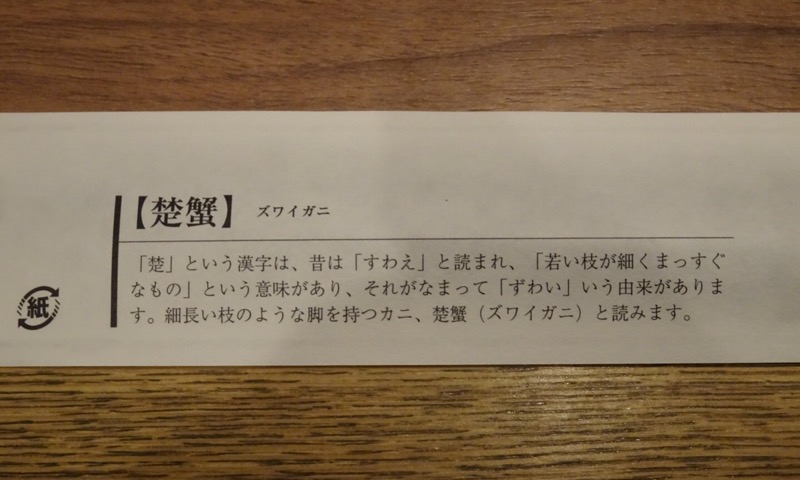 【楚蟹】 ズワイガニ
「楚」という漢字は、昔は「すわえ」と読まれ、「若い枝が細くまっすぐ
なもの」という意味があり、それがなまって「ずわい」いう由来がありま
す。細長い枝のような脚を持つカニ、楚蟹（ズワイガニ）と読みます。
紙